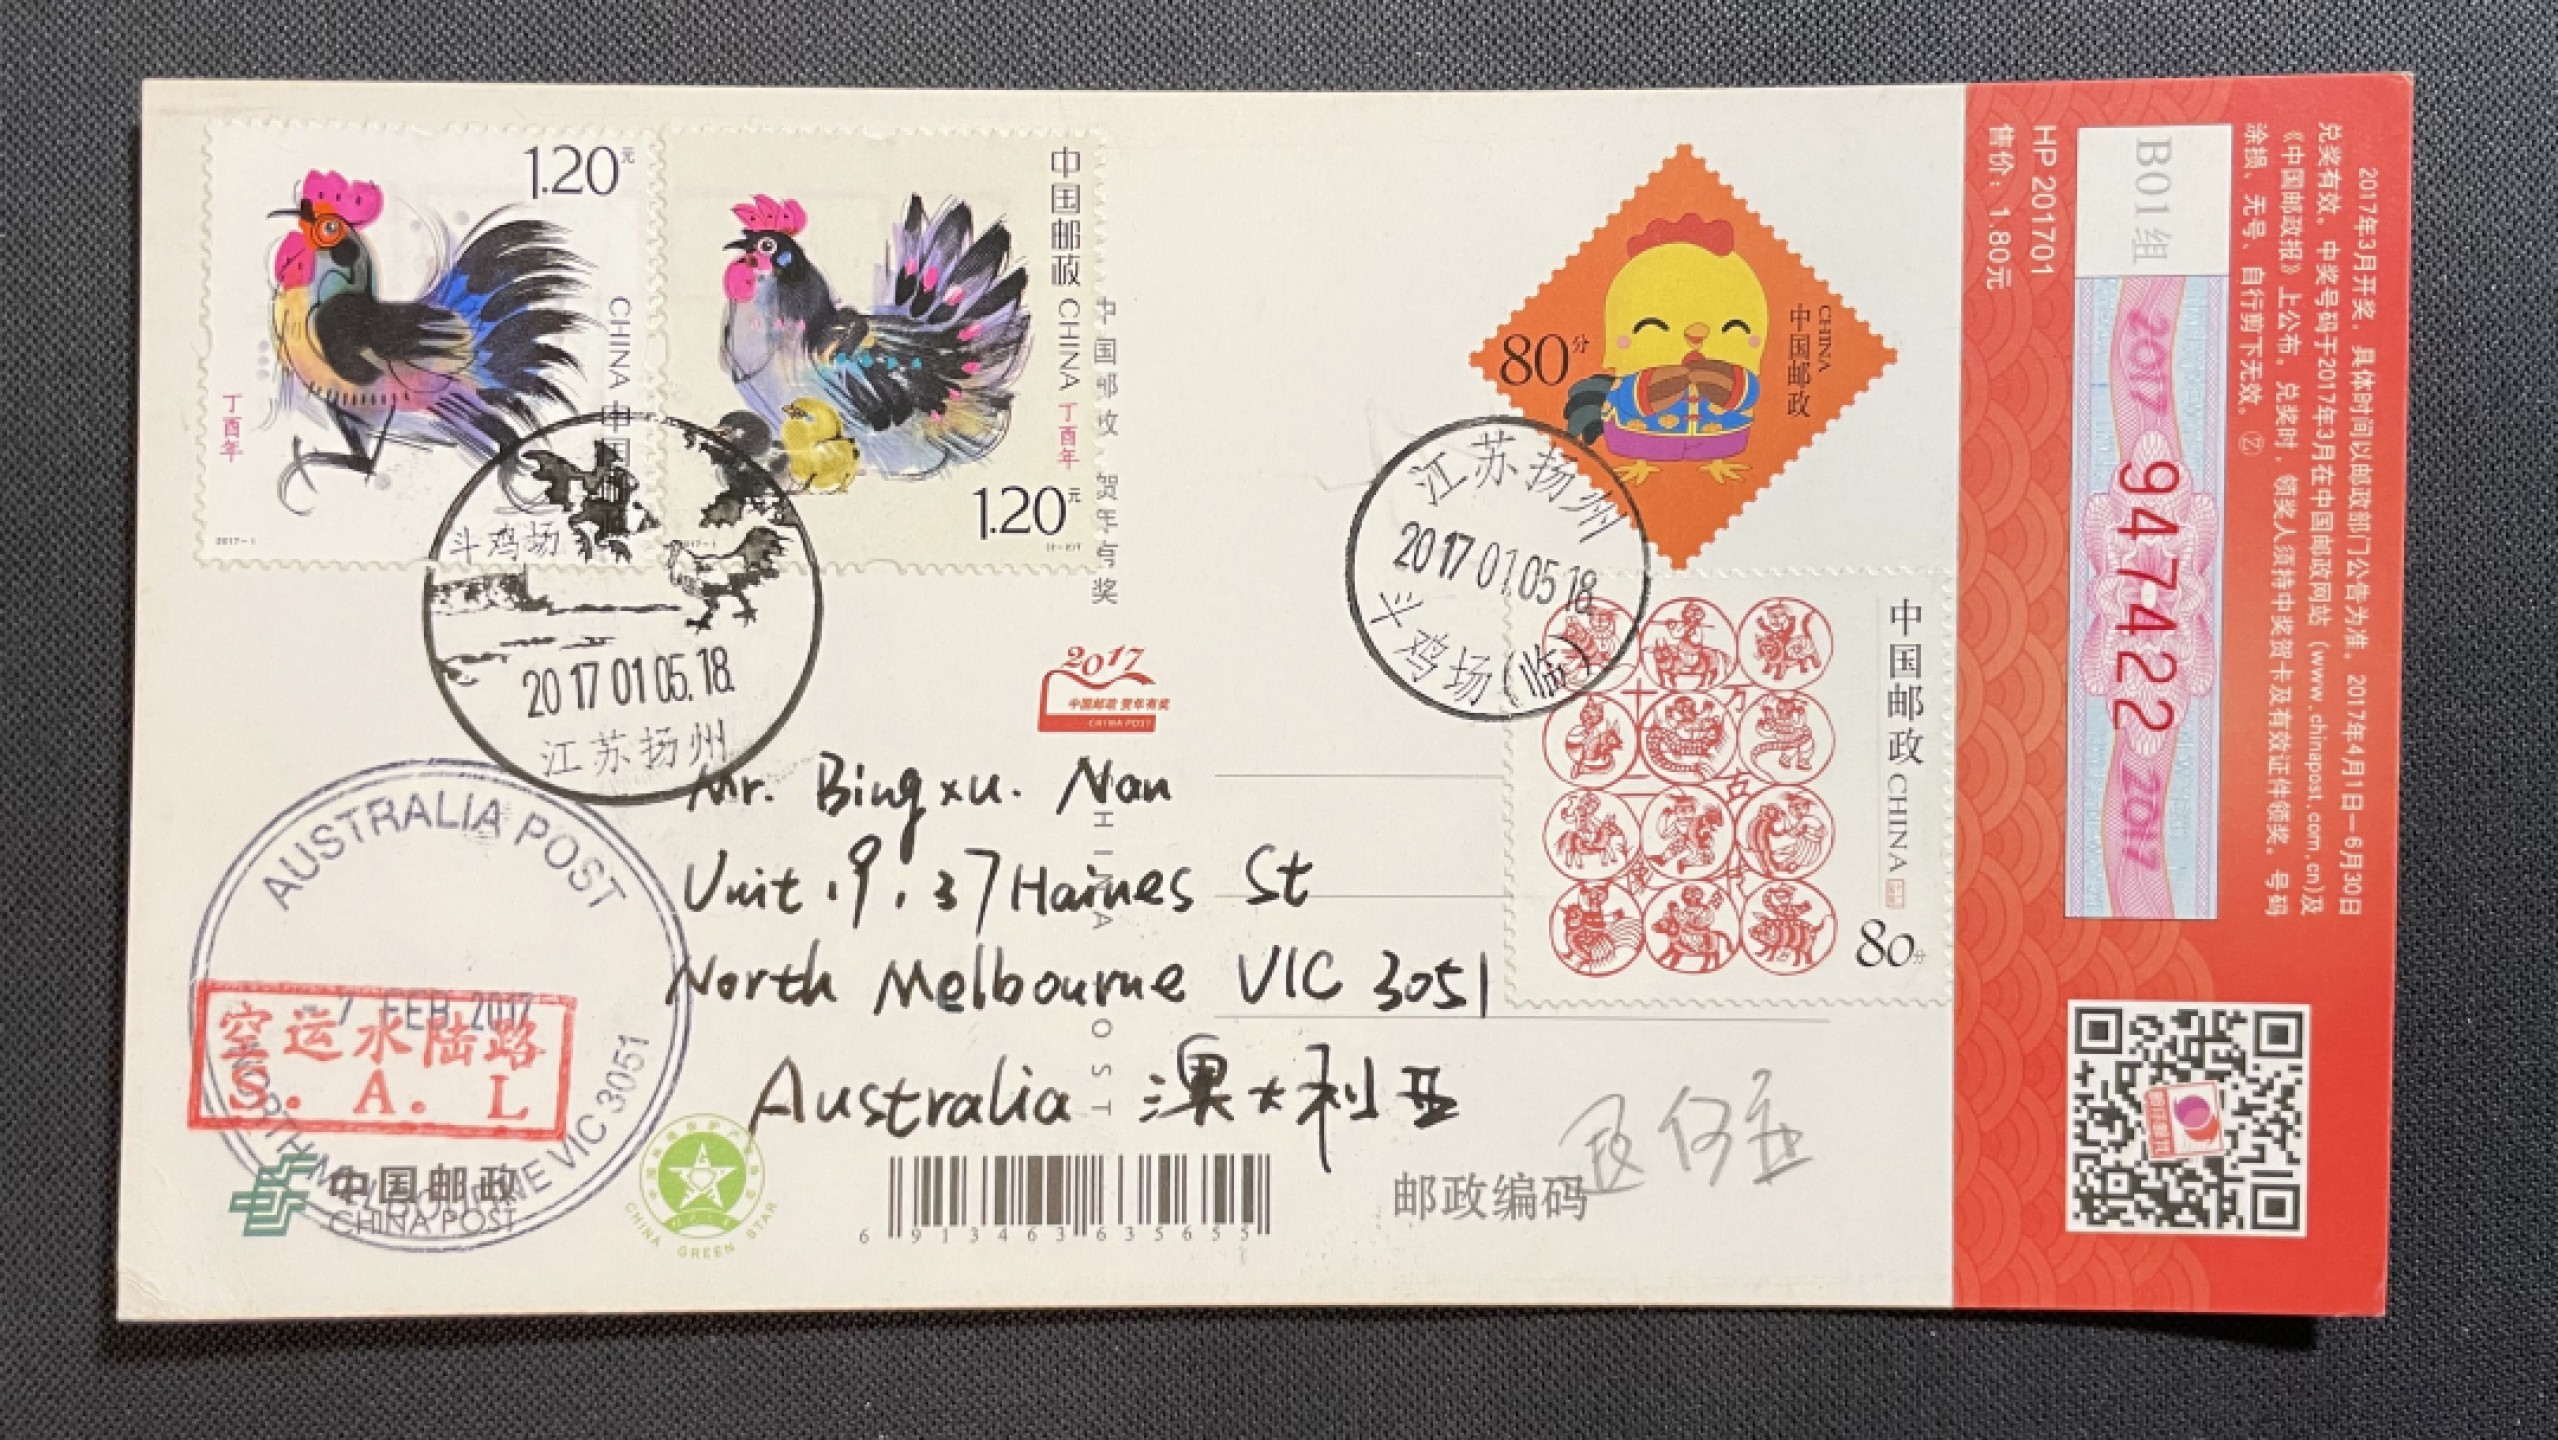 1.20元
CHINA 中国
丁酉年
2017-1
中国邮政 CHINA
丁酉年
1.20元
2017-1
(2-2)T
中国邮政 贺年有奖
CHINA POST
80分
CHINA
中国邮政
斗鸡场
2017 01 05. 18.
江苏扬州
江苏扬州
2017 01.05 18
斗鸡场(临)
2017
中国邮政 贺年有奖
CHINA POST
中国邮政 CHINA
80分
Mr. Bingxu. Nan
Unit .9. 37 Haines St
North Melbourne VIC 3051
Australia 澳大利亚
AUSTRALIA POST
7 FEB 2017
NORTH MELBOURNE VIC 3051
空运水陆路
S. A. L
中国邮政
CHINA POST
CHINA GREEN STAR
6 913463 635655
邮政编码
2017年3月开奖，具体时间以邮政部门公告为准。2017年4月1日—6月30日
兑奖有效。中奖号码于2017年3月在中国邮政网站（www.chinapost.com.cn)及
《中国邮政报》上公布。兑奖时，领奖人须持中奖贺卡及有效证件领奖。号码
涂损、无号、自行剪下无效。②
B01组
2017 947422 2017
HP 201701
售价：1.80元